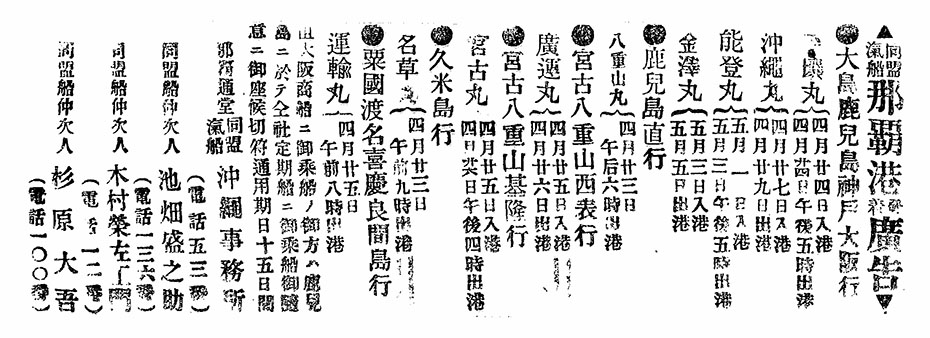 ▲同盟滊船那覇港發着廣告▼
●大島鹿兒島神戸大阪行
丸
四月廿四日入港
四月廿四日午後五時出港
沖繩丸
四月廿七日入港
四月廿九日出港
能登丸
五月一日入港
五月三日午後五時出港
金澤丸
五月三日入港
五月五日出港
●鹿兒島直行
八重山丸
四月廿三日
午后六時出港
●宮古八重山西表行
廣運丸
四月廿五日入港
四月廿六日出港
●宮古八重山基隆行
宮古丸
四月廿五日入港
四月廿六日午後四時出港
●久米島行
名草丸
四月廿三日
午前九時出港
●粟國渡名喜慶良間島行
運輸丸
四月廿五日
午前八時出港
但大阪商船ニ御乘船ノ御方ハ鹿兒
島ニ於テ仝社定期船ニ御乘船御隨
意ニ御座候切符通用期日十五日間
那覇通堂 同盟滊船 沖繩事務所
(電話五三番)
同盟船仲次人 池畑盛之助
(電話一三六番)
同盟船仲次人 木村榮左工門
(電話一二番)
同盟船仲次人 杉原大吾
(電話一〇〇番)